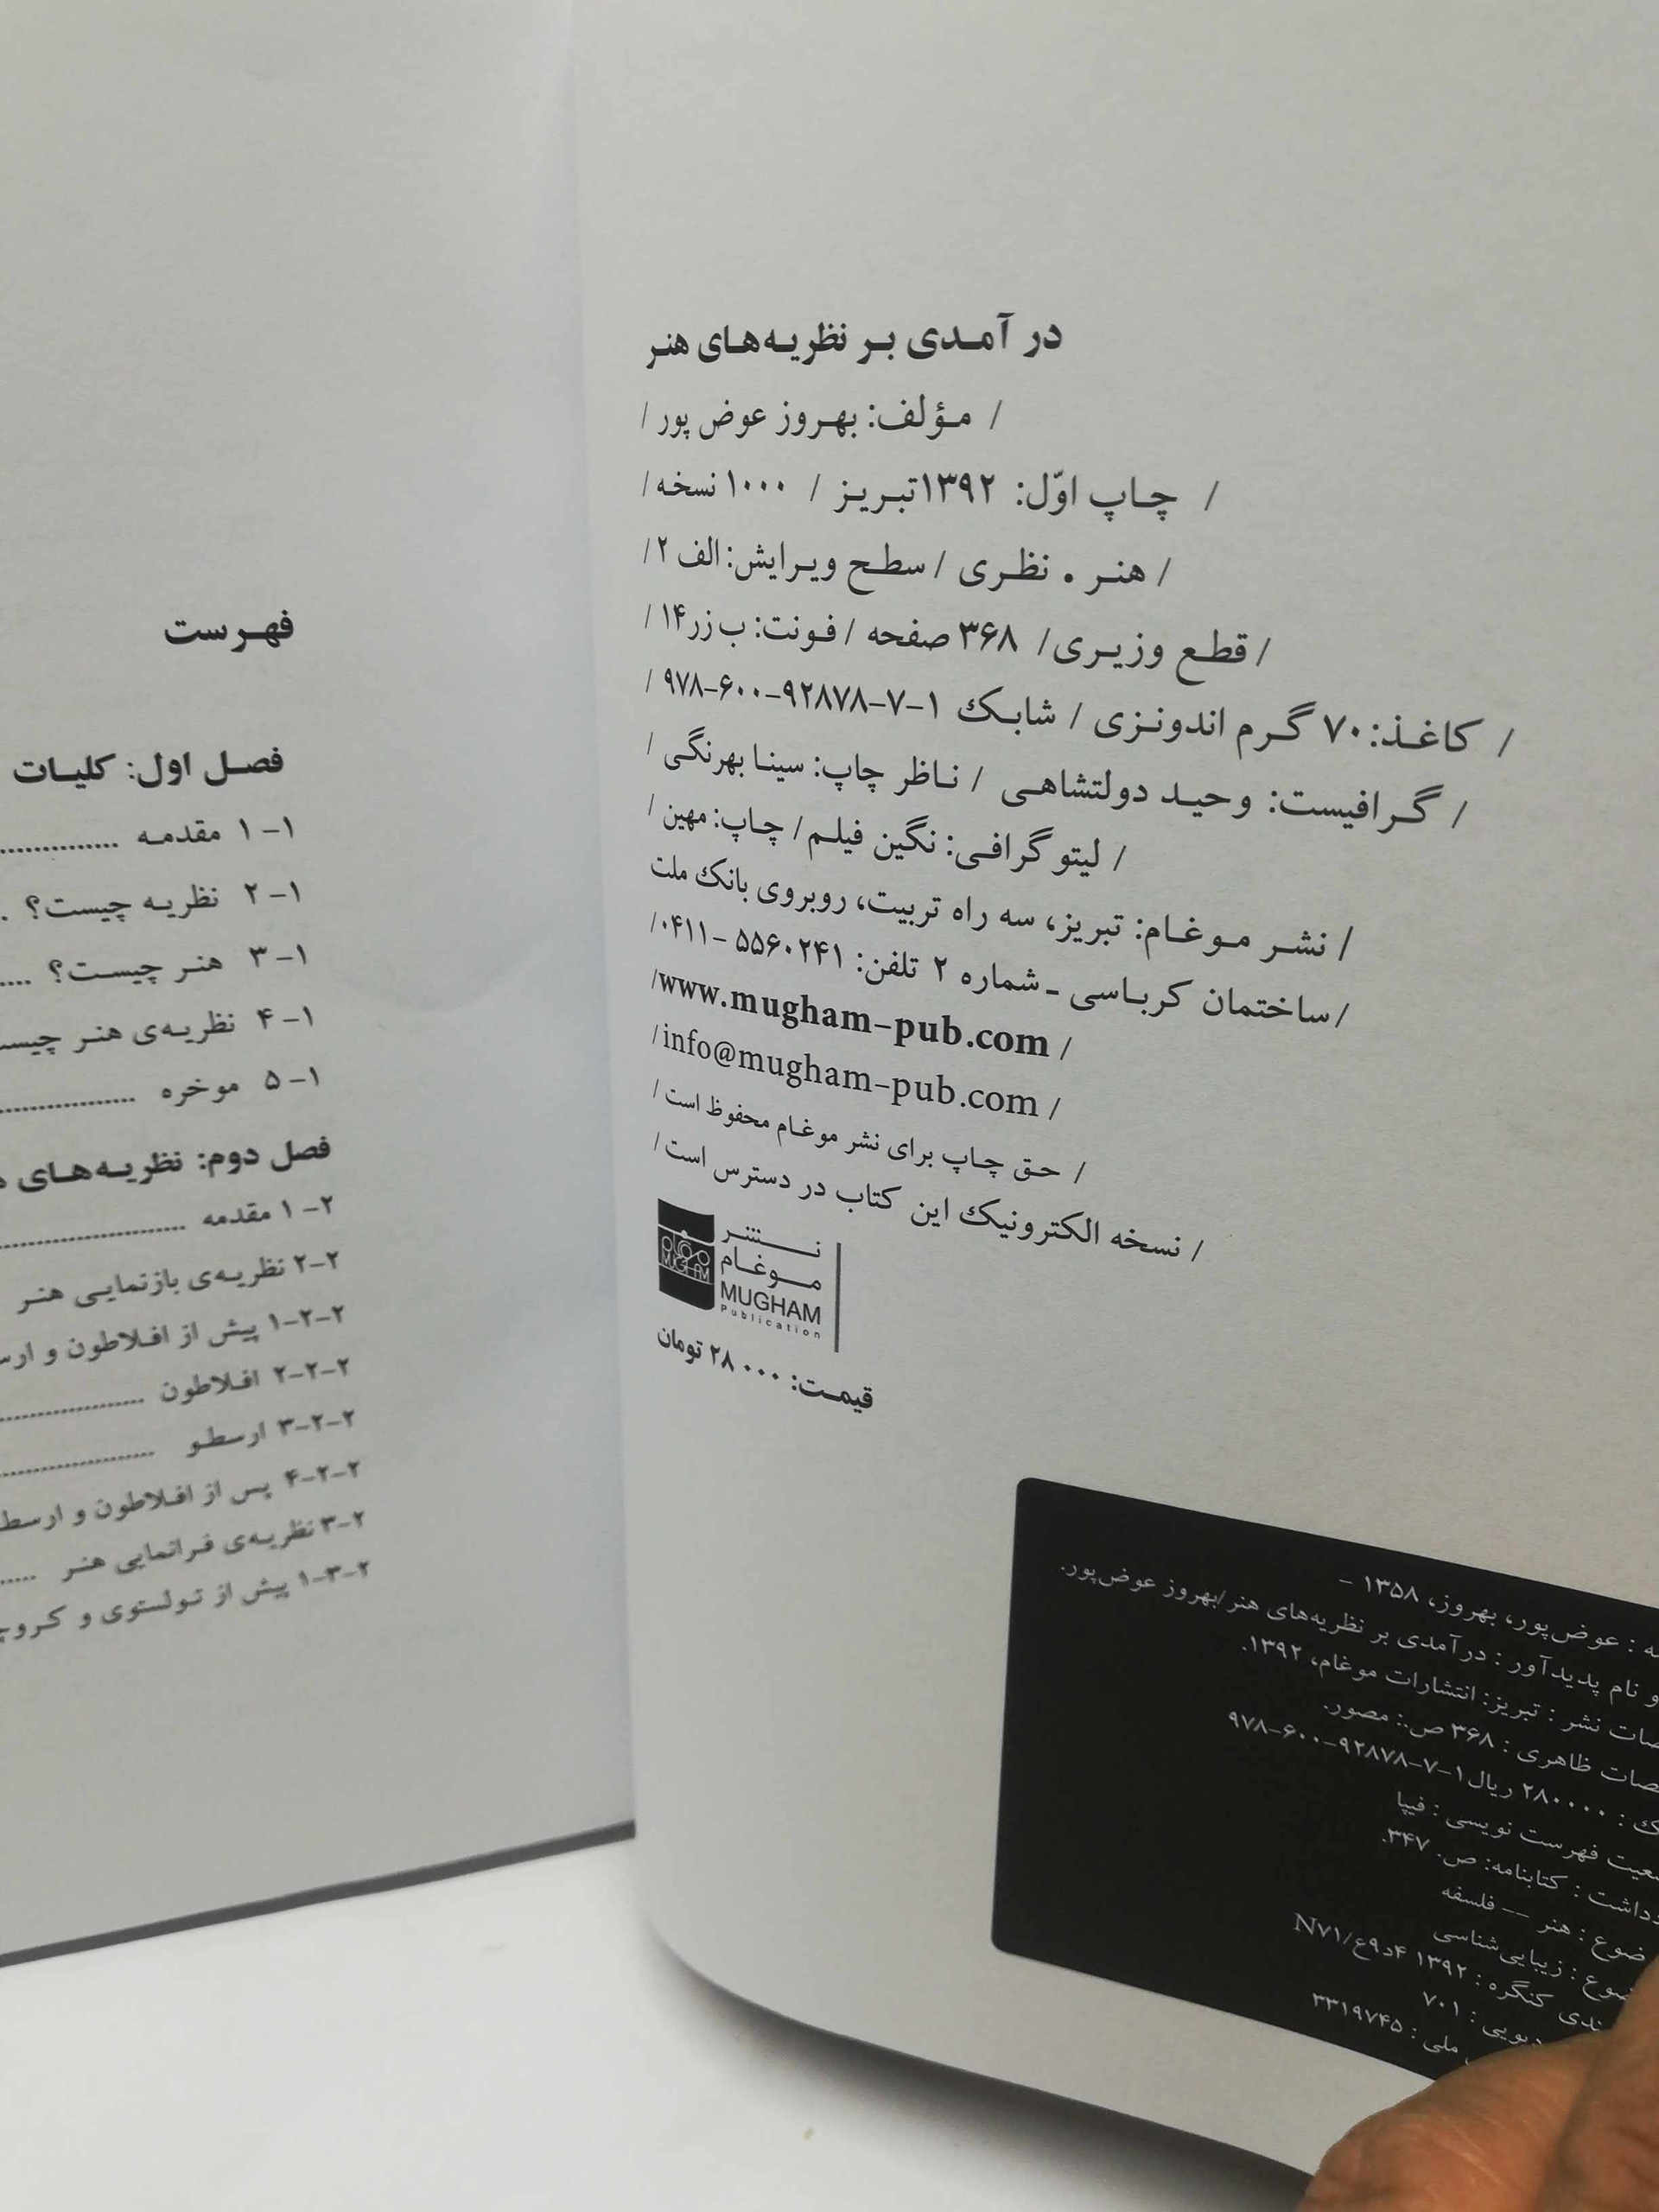 در آمدی بر نظریه‌های هنر
/ مؤلف: بهروز عوض پور /
/ چاپ اوّل: ۱۳۹۲تبریز / ۱۰۰۰ نسخه/
/ هنر . نظری / سطح ویرایش: الف ۲/
/ قطع وزیری/ ۳۶۸ صفحه / فونت: ب زر۱۴ /
/ کاغذ: ۷۰ گرم اندونزی / شابک ۱-۷-۹۲۸۷۸-۶۰۰-۹۷۸ /
/ گرافیست: وحید دولتشاهی / ناظر چاپ: سینا بهرنگی /
/ لیتو گرافی: نگین فیلم/ چاپ: مهین /
/ نشر موغام: تبریز، سه راه تربیت، روبروی بانک ملت
/ ساختمان کرباسی - شماره ۲ تلفن: ۵۵۶۰۲۴۱ -۰۴۱۱/
/www.mugham-pub.com /
/info@mugham-pub.com /
/ حق چاپ برای نشر موغام محفوظ است /
/ نسخه الکترونیک این کتاب در دسترس است /
نشر
موغام
MUGHAM
Publication
موغام
MUGHAM
قیمت: ۲۸۰۰۰ تومان
: عوض‌پور، بهروز، ۱۳۵۸ -
و نام پدیدآور : درآمدی بر نظریه‌های هنر/بهروز عوض‌پور.
نشر : تبریز: انتشارات موغام، ۱۳۹۲.
ظاهری : ۳۶۸ ص.: مصور.
: ۲۸۰۰۰۰ ریال ۱-۷-۹۲۸۷۸-۶۰۰-۹۷۸
فهرست نویسی : فیپا
: کتابنامه: ص. ۳۴۷.
: هنر -- فلسفه
: زیبایی‌شناسی
کنگره : ۱۳۹۲ ۴د۹ع/N۷۱
دیویی : ۷۰۱
ملی : ۳۳۱۹۷۴۵
فهرست
فصل اول: کلیات
۱-۱ مقدمه ................
۱-۲ نظریه چیست؟ .
۱-۳ هنر چیست؟ ....
۱-۴ نظریه‌ی هنر
۱-۵ موخره ..................
فصل دوم: نظریه‌های
۲-۱ مقدمه ........................
۲-۲ نظریه‌ی بازنمایی هنر
۲-۲-۱ پیش از افلاطون و
۲-۲-۲ افلاطون ....................
۲-۲-۳ ارسطو ......................
۲-۲-۴ پس از افلاطون و
۲-۳ نظریه‌ی فرانمایی هنر .....
۲-۳-۱ پیش از تولستوی و